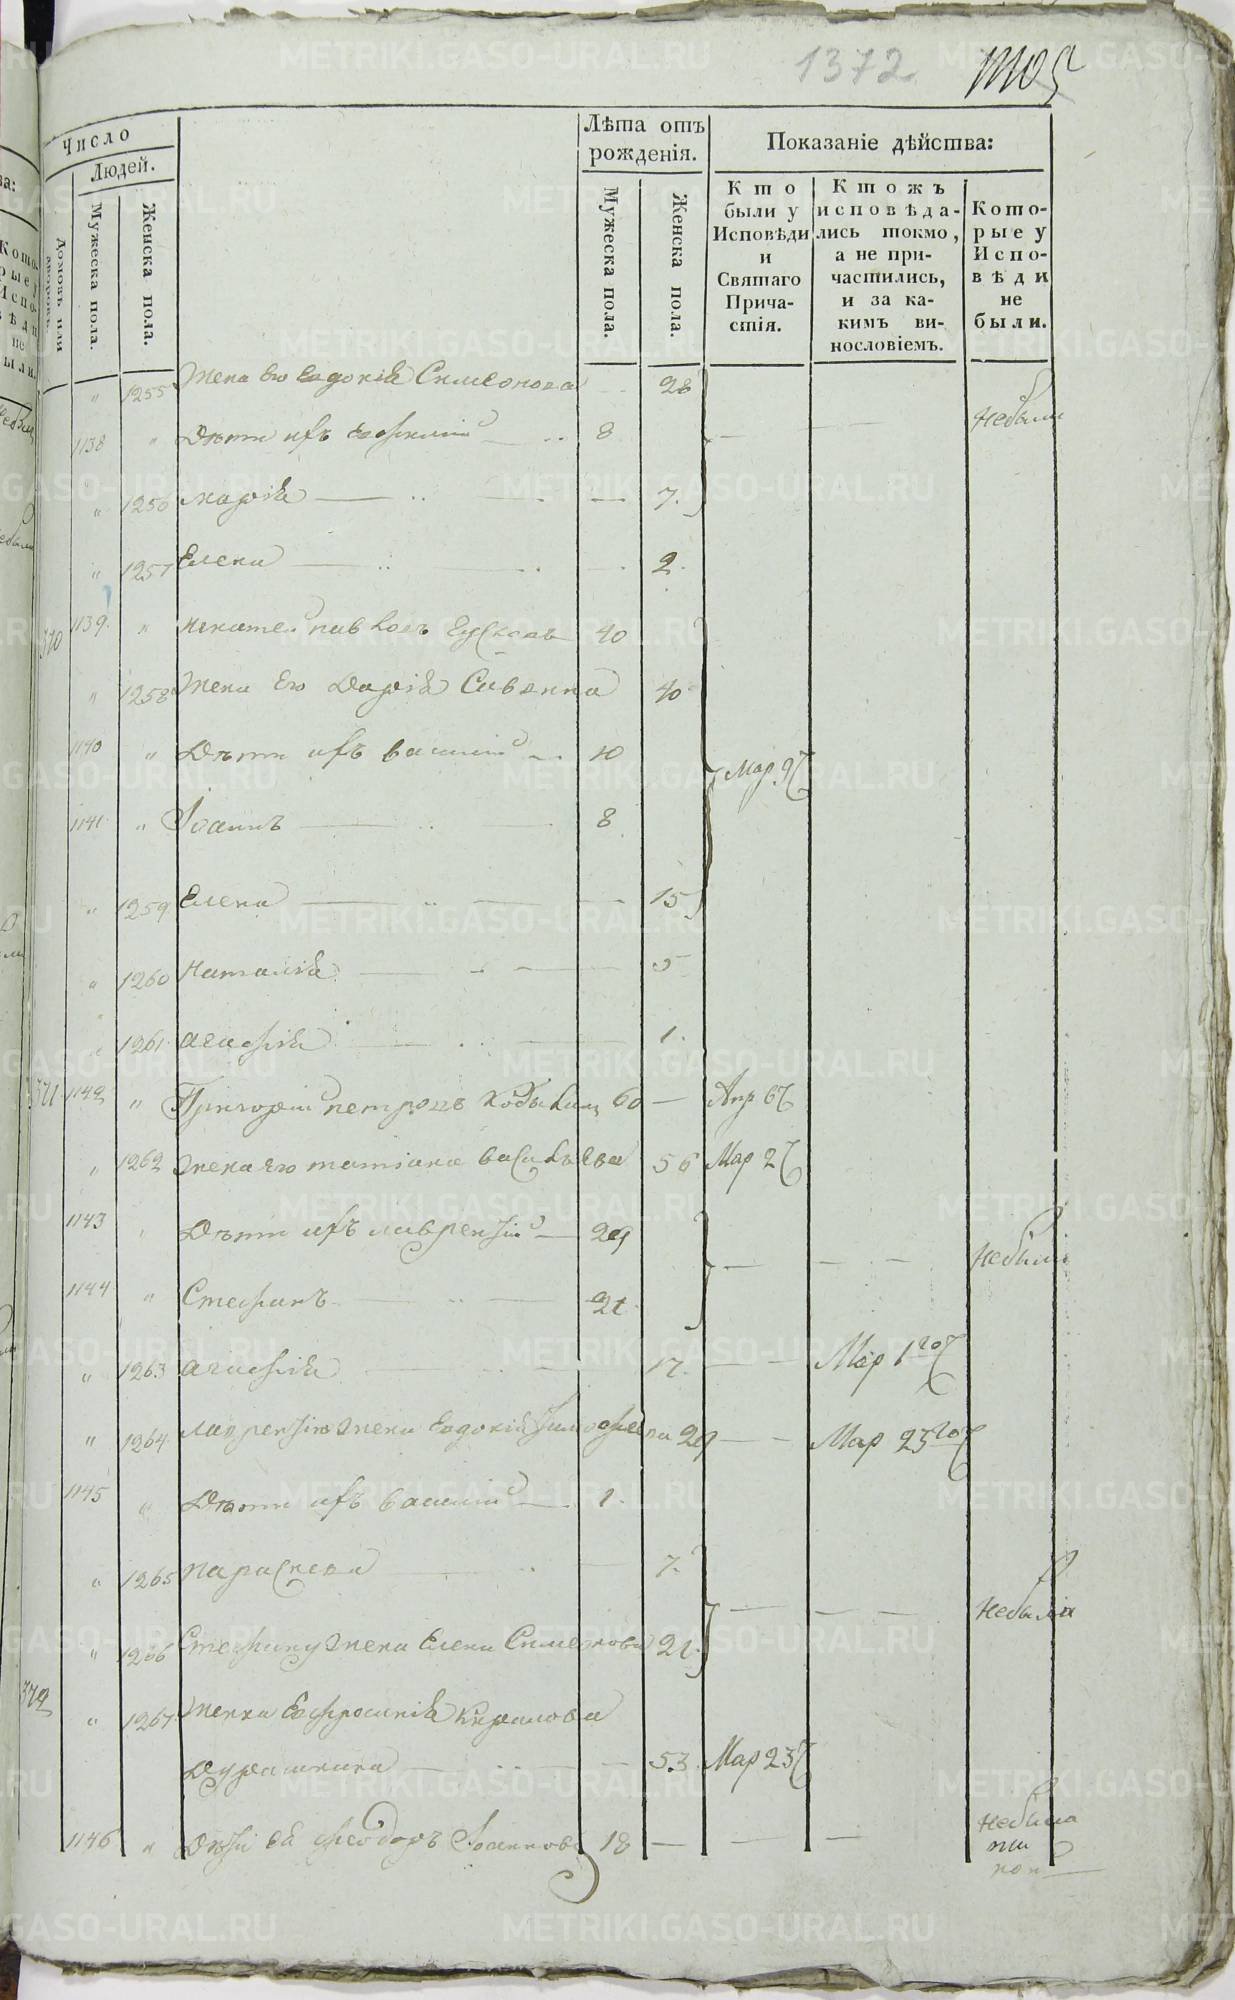 1372
Число
Людей.
Домовъ или дворовъ.
Мужеска пола.
Женска пола.
Лѣта отъ рожденія.
Мужеска пола.
Женска пола.
Показаніе дѣйства:
Кто были у Исповѣди и Святаго Причастія.
Ктожъ исповѣдались токмо, а не причастились, и за какимъ винословіемъ.
Которые у Исповѣди не были.
" 1255 Жена его Евдокія Симеонова 28
1138 " Дѣти ихъ 8 Небыли
" 1256 Марія 7.
" 1257 Елена 2.
370 1139 " Павловъ 40
" 1258 Жена Его Дарія Саввина 40
1140 " Дѣти ихъ Василій 10 Мар 9
1141 " Іоаннъ 8
" 1259 Елена 15
" 1260 Наталія 5
" 1261 Агафія 1.
371 1142 " Григорій Петровъ 60 Апр 6
" 1262 Жена Его Татіана Васильева 56 Мар 2
1143 " Дѣти ихъ Лаврентій 29 Небыли
1144 " Стефанъ 21
" 1263 Агафія 17. Мар 1го
" 1264 Лаврентія жена Евдокія Тимофеева 29 Мар 23го
1145 " Дѣти ихъ Василій 1.
" 1265 Параскева 7. Небыли
" 1266 Стефану жена Елена Симеонова 21.
372 " 1267 Женка Евфросинія
53. Мар 23
1146 " Дѣти Ея Феодоръ Іоанновъ 18 Небыла
METRIKI.GASO-URAL.RU